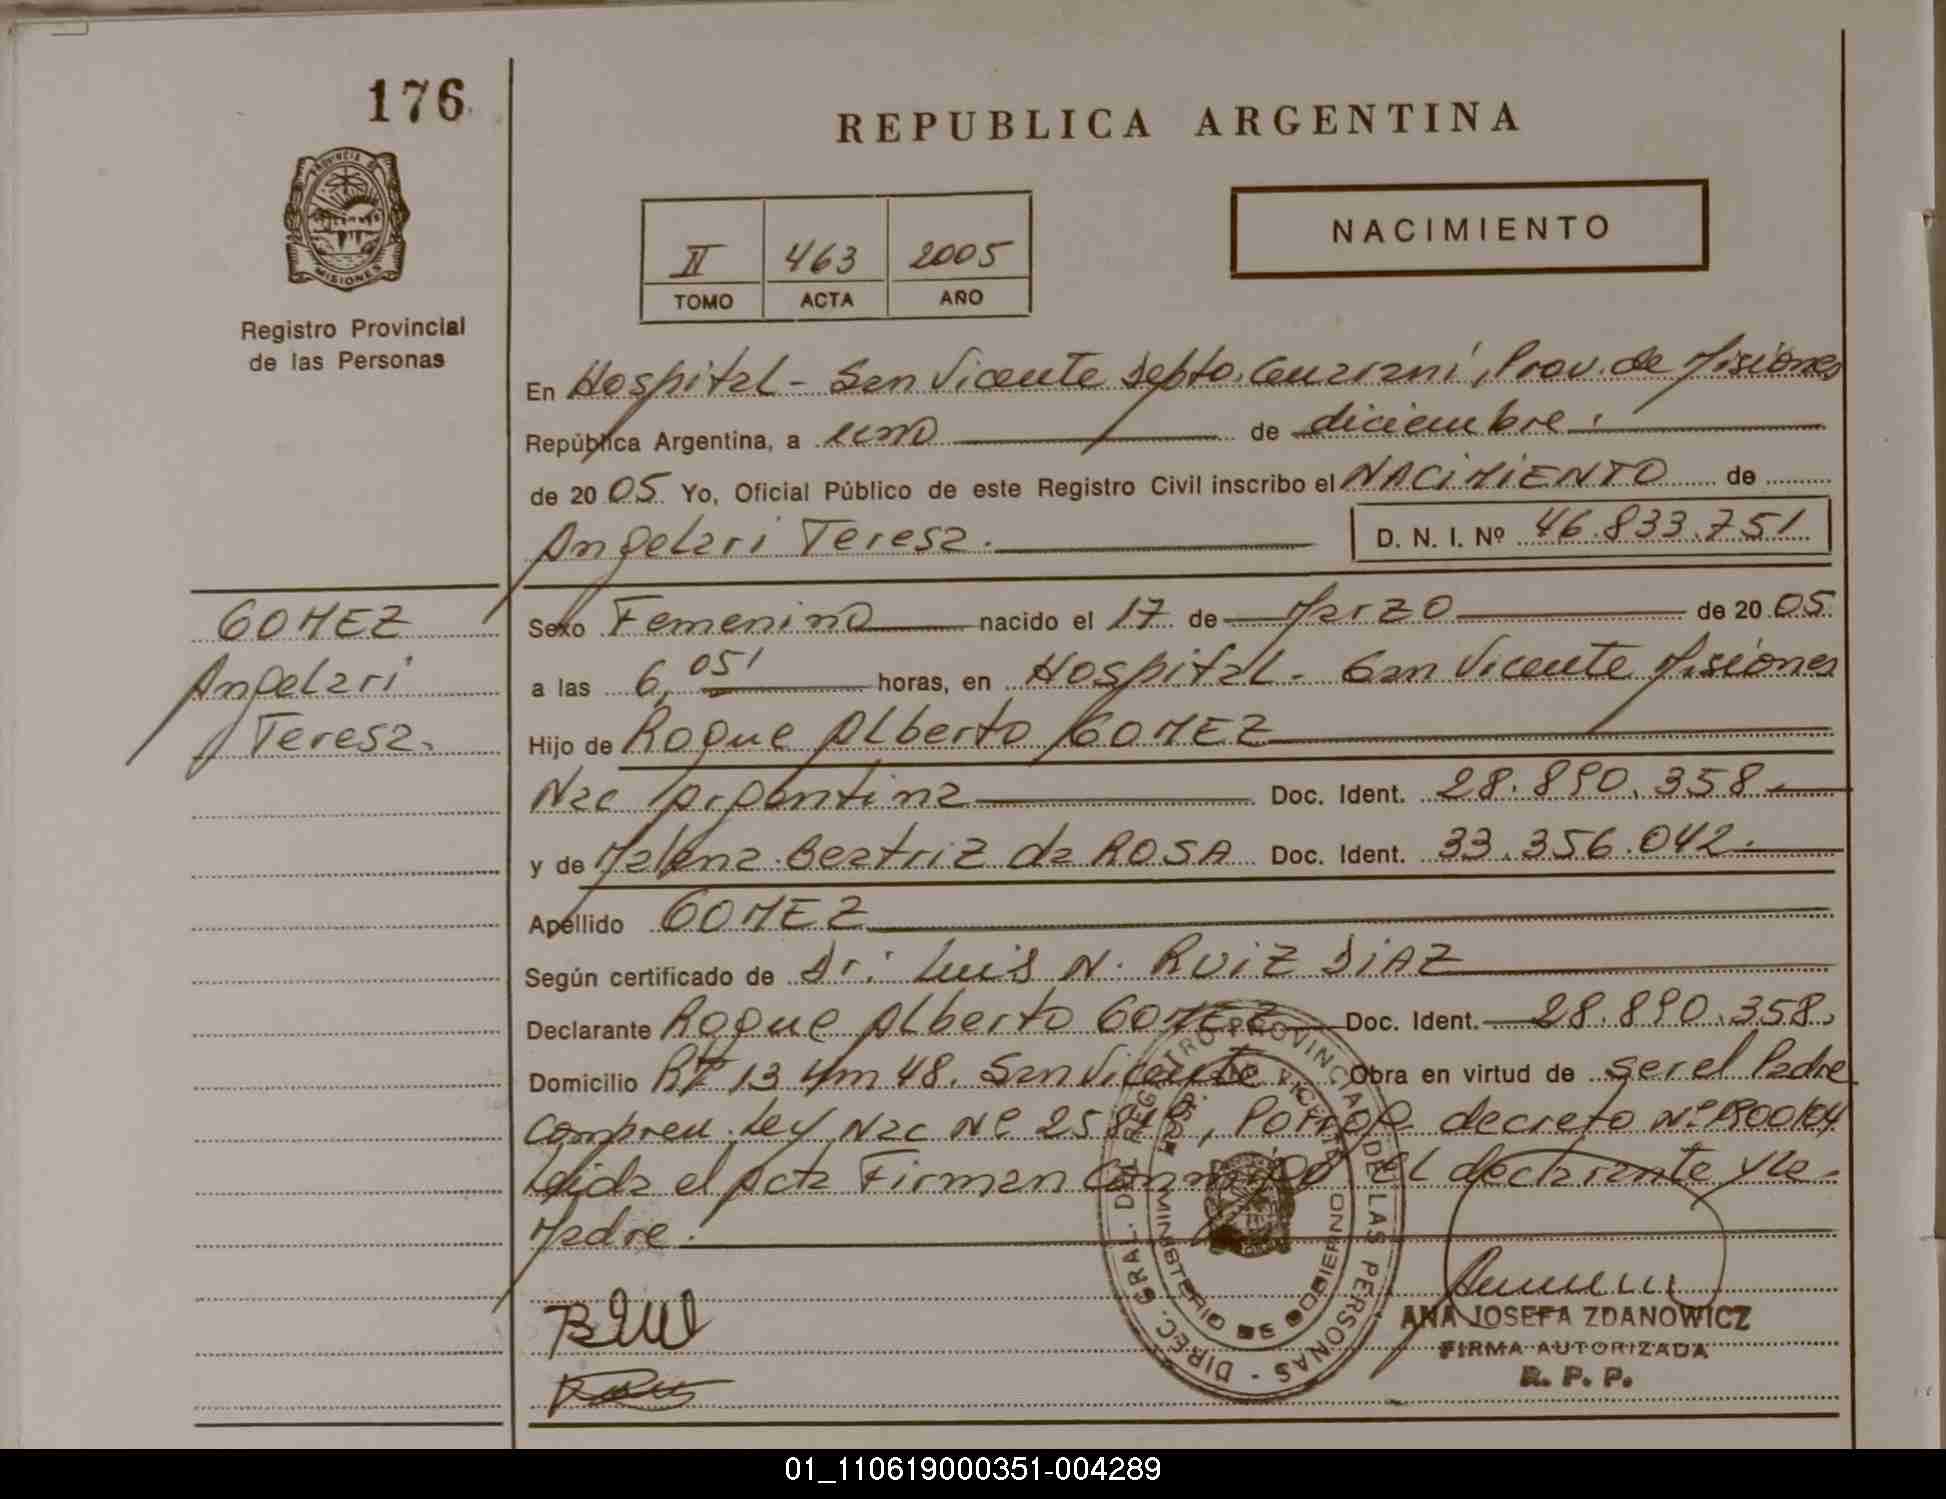 176
PROVINCIA DE
MISIONES
Registro Provincial
de las Personas
REPUBLICA ARGENTINA
II 463 2005
TOMO ACTA AÑO
NACIMIENTO
En Hospital - San Vicente Depto. Guarani, Prov. de Misiones
República Argentina, a uno de diciembre.
de 2005 Yo, Oficial Público de este Registro Civil inscribo el NACIMIENTO de
Angelari Teresa.
D. N. I. Nº 46.833.751
GOMEZ
Angelari
Teresa.
Sexo Femenino nacido el 17 de Marzo de 2005
a las 6,05' horas, en Hospital - San Vicente Misiones
Hijo de Roque Alberto GOMEZ
Nac Argentina Doc. Ident. 28.890.358
y de Malena Beatriz da ROSA Doc. Ident. 33.356.042.
Apellido GOMEZ
Según certificado de Dr. Luis N. RUIZ DIAZ
Declarante Roque Alberto GOMEZ Doc. Ident. 28.890.358.
Domicilio 13 Km 48. San Vicente Obra en virtud de ser el Padre
Ley Nac Nº decreto Nº 1900/04
Leida el Acta Firman conmigo el declarante y la
Madre.
DIREC. GRAL. DEL REGISTRO PROVINCIAL DE LAS PERSONAS
MINISTERIO DE GOBIERNO
ANA JOSEFA ZDANOWICZ
FIRMA AUTORIZADA
R. P. P.
01_110619000351-004289